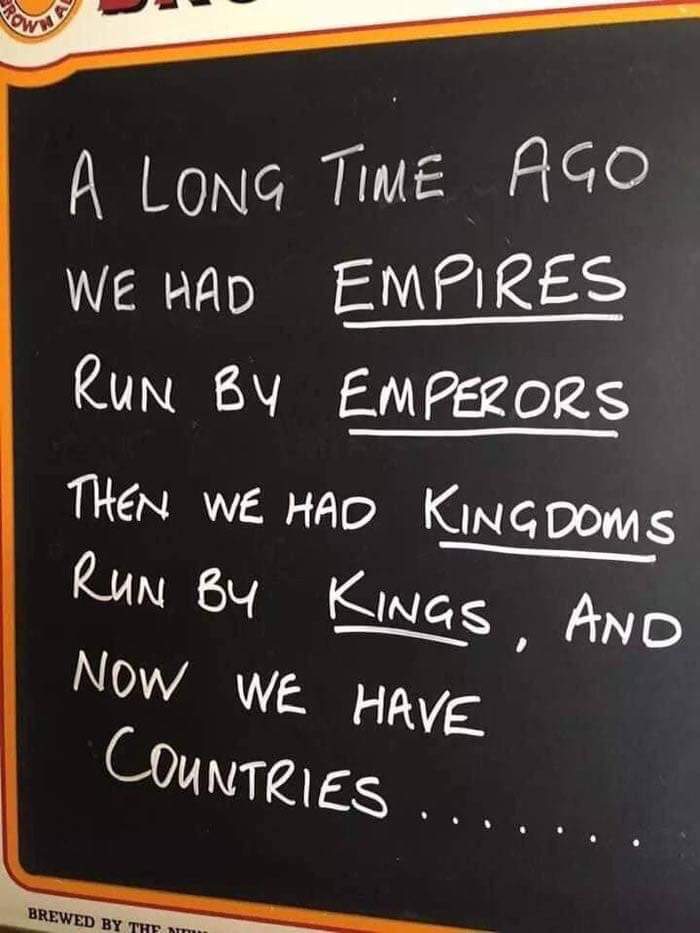 A LONG TIME AGO
WE HAD EMPIRES
RUN BY EMPERORS
THEN WE HAD KINGDOMS
RUN BY KINGS, AND
NOW WE HAVE
COUNTRIES ........
BREWED BY THE